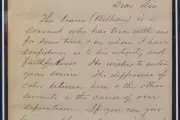 Dear Sir
The bearer (William) is a
servant who has been with me
for some time & in whom I have
confidence as to his integrity and
faithfulness. He wishes to enter
your service. The difference of
color between him & the other
servants is the cause of our
separation. If you can give